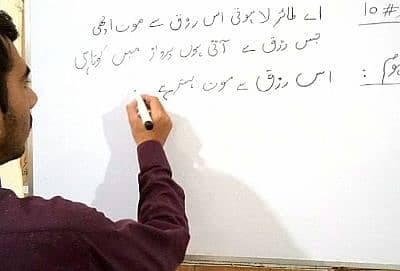 #10
اے طائر لاہوتی اس رزق سے موت اچھی
جس رزق سے آتی ہوں پرواز میں کوتاہی
ہوم : اس رزق سے موت بہتر ہے